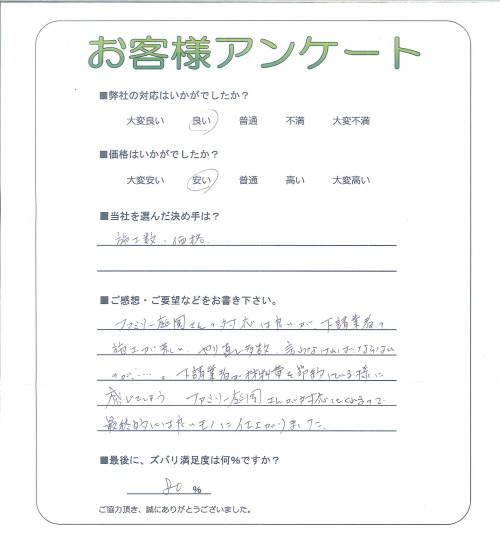 お客様アンケート
■弊社の対応はいかがでしたか？
大変良い 良い 普通 不満 大変不満
■価格はいかがでしたか？
大変安い 安い 普通 高い 大変高い
■当社を選んだ決め手は？
施工数、価格
■ご感想・ご要望などをお書き下さい。
ファミリー庭園さんの対応は良いが、下請業者の
施工が荒い、やり直し多数、言わなければならない
のが……。下請業者が材料費を節約している様に
感じてしまう ファミリー庭園さんが対応してくるので
最終的には良いモノに仕上がりました。
■最後に、ズバリ満足度は何％ですか？
80 %
ご協力頂き、誠にありがとうございました。